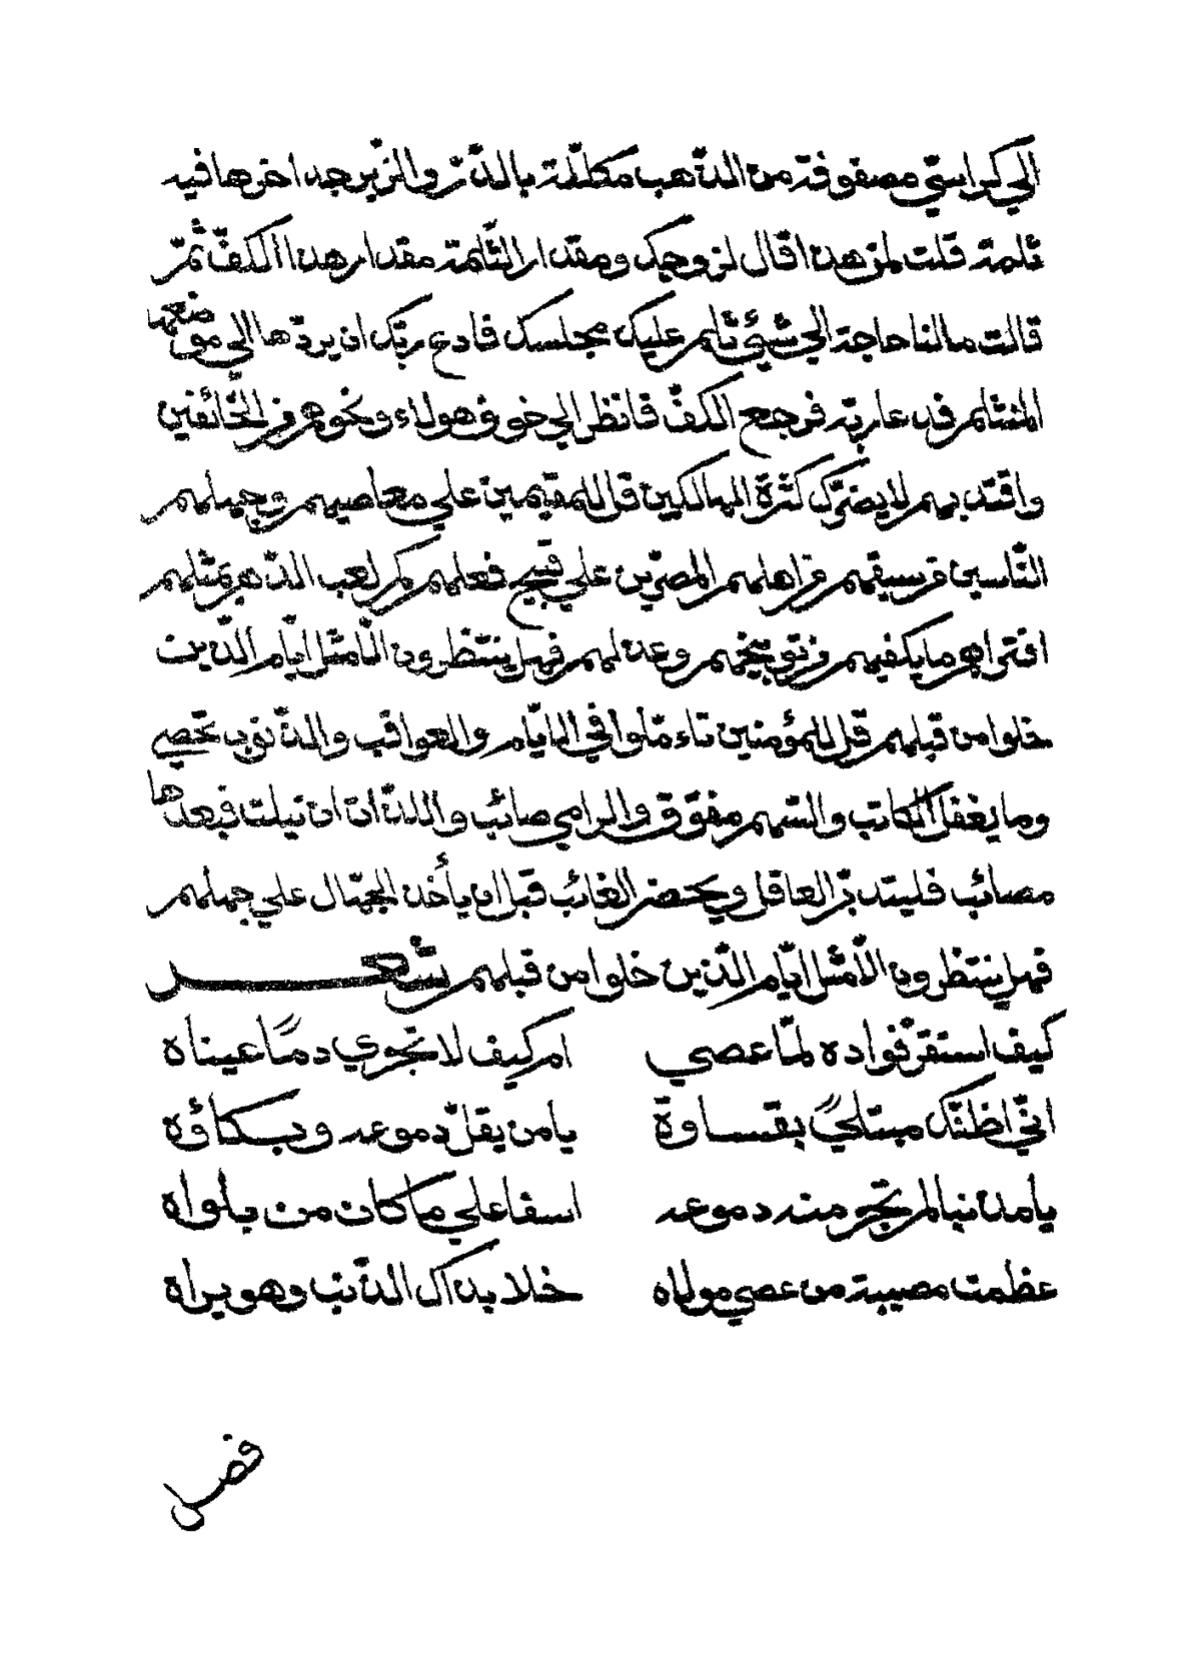 الي كراسيّ مصفوفة من الذّهب مكللّة بالدّرّ والزّبرجد اخرها فيه
ثلمة قلت لمن هذا قال لزوجك ومقدار الثّلمة مقدار هذا الكفّ ثمّ
قالت مالنا حاجة الي شيئ ثلم عليك مجلسك فادع ربّك ان يردّها الي موضعها
المنثلم فدعا ربّه فرجع الكفّ فانظر الي خوف هولاء ونحوهم من الخّائفين
واقتد بهم لا يضرّك كثرة الهالكين قل للمقيمين علي معاصيهم وجهلهم
النّاسين من سبقهم من اهلهم المصرّين علي قبيح فعلهم كم لعب الدّهر بمثلهم
افترا هم ما يكفيهم من توبيخهم وعذلهم فهل ينتظرون الّا مثل ايّام الّذين
خلوا من قبلهم قل للمؤمنين تاءمّلوا في الايّام والعواقب والذّنوب تحصي
وما يغفل الكاتب والسّهم مفوّق والرامي صائب واللذّات ان نيلت فبعدها
مصائب فليتدبّر العاقل ويحضر الغائب قبل ان يأخذ الجهّال علي جهلهم
فهل ينتظرون الّا مثل ايّام الّذين خلوا من قبلهم شعر
كيف استقرّ فواده لمّا عصي ام كيف لا تجري دمًا عيناه
انّي اظنّك مبتليً بقساوة يا من يقلّ دموعه وبكاؤه
يا مذنبا لم تجر منه دموعه اسفا علي ما كان من بلواه
عظمت مصيبة من عصي مولاه خلا بذاك الذّنب وهو يراه
فصل